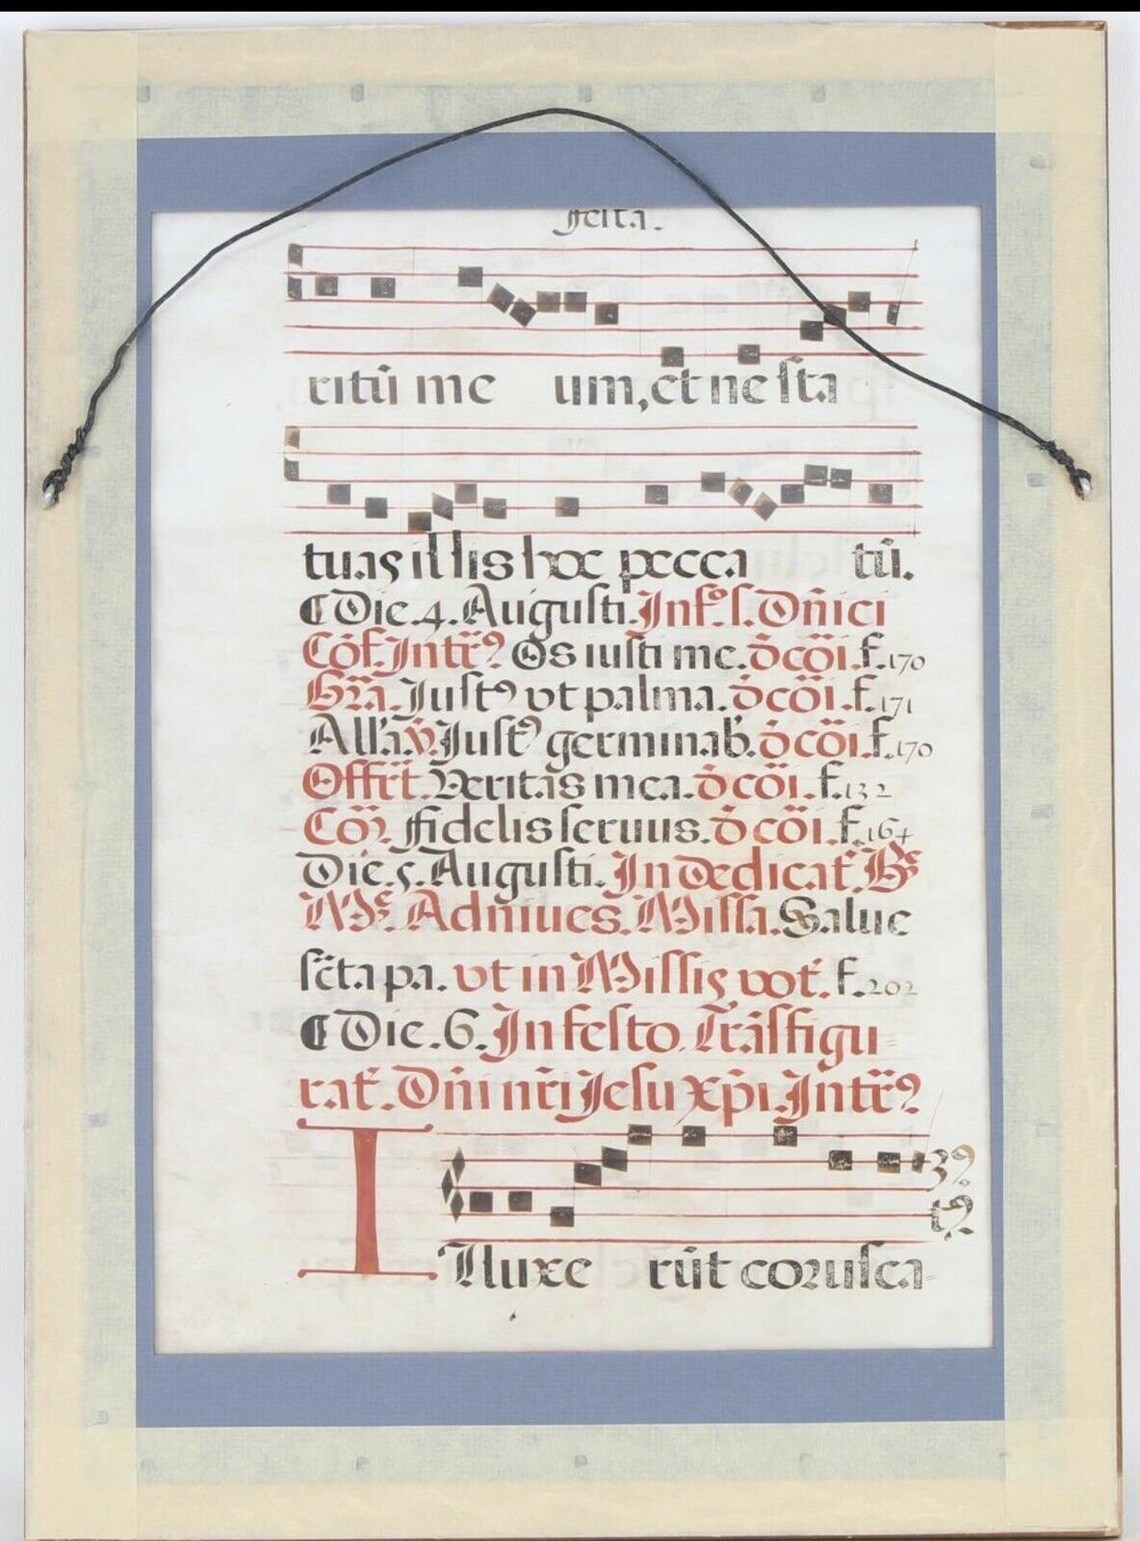 festa.
ritũ me um, et ne sta
tuas illis hoc pecca tũ.
Die.4. Augusti. In f.º s. Dñici
Cõf. Intr̃ꝰ Os iusti me. d̃ cõi. f.170
Gr̃a. Justꝰ vt palma. d̃ cõi. f.171
All'a. v̇. Justꝰ germinab. d̃ cõi. f.170
Offr̃t. Veritas mea. d̃ cõi. f.132
Cõ. Fidelis seruus. d̃ cõi. f.164
Die.5. Augusti. In Dedicat̃. Bᵉ
Mᵉ. Ad niues. Missa. Salue
sc̃ta pa. vt in Missis vot̃. f.202
Die.6. In festo. Trãsfigu
rat̃. Dñi nr̃i Jesu xp̃i. Intr̃ꝰ
3ꝰ
tꝰ
I Lluxe rũt corusca